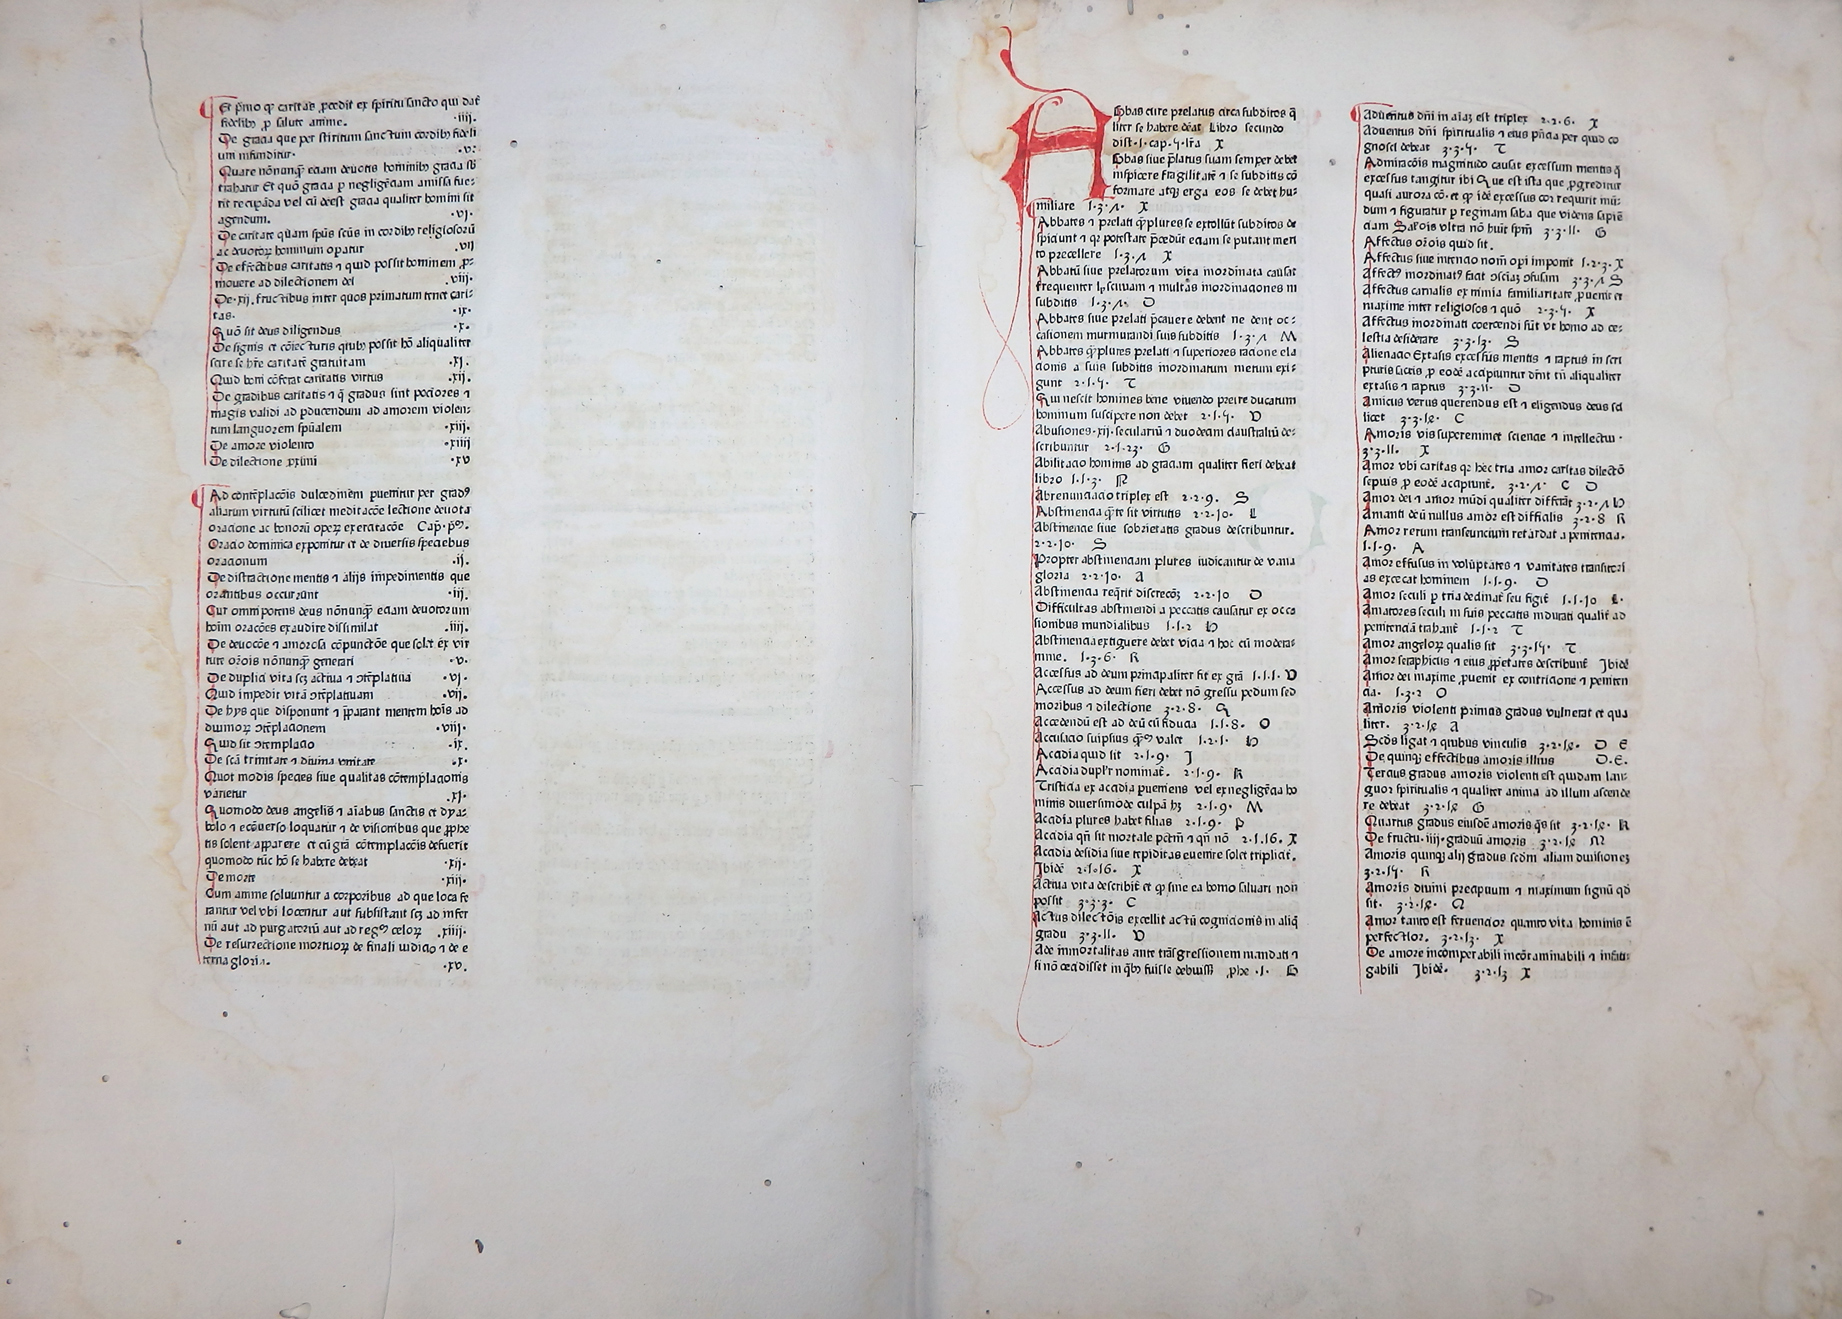 Et p̄mo qͥ caritas ꝓcedit ex spiritu sancto qui dat̄
fidelibꝫ ꝓ salute anime. ·iiij.
De gracia que per spiritum sanctum cordibꝫ fideli
um infunditur. ·v.
Quare nōnunqꝫ eciam deuotis hominibꝫ gracia sb̄
trahatur Et quō gracia ꝑ negligēciam amissa fue⸗
rit recupāda vel cū deest gracia qualiter homini sit
agendum. ·vj.
De caritate quam spūs scūs in cordibꝫ religiosorū
ac deuotoꝝ hominum operatur .vij
De effectibus caritatis ⁊ quid possit hominem ꝓ⸗
mouere ad dilectionem dei .viij.
De·xij. fructibus inter quos primatum tenet cari⸗
tas. ·ix·
Quō sit deus diligendus ·x·
De signis et cōiecturis qͥbꝫ possit hō aliqualiter
scire se hr̄e caritatē gratuitam ·xj.
Quid boni cōferat caritatis virtus ·xij.
De gradibus caritatis ⁊ q̄ gradus sint pociores ⁊
magis validi ad ꝓducendum ad amorem violen⸗
tum languorem spūalem ·xiij.
De amore violento ·xiiij
De dilectione ꝓximi ·xv
Ad contēplacōis dulcedinem peruenitur per gradꝰ
aliarum virtutū scilicet meditacōe lectione deuota
oracione ac bonorū opeꝝ exercitacōe Cap·p̄ꝰ.
Oracio dominica exponitur et de diuersis speciebus
oracionum ·ij.
De distractione mentis ⁊ alijs impedimentis que
orantibus occurrunt ·iij.
Cur omnipotens deus nōnunqꝫ eciam deuotorum
hoīm oracōes exaudire dissimilat ·iiij.
De deuocōe ⁊ amorosa cōpunctōe que solet ex vir
tute orōis nōnunqꝫ generari ·v·
De duplici vita scꝫ actiua ⁊ ↄtēplatiua ·vj·
Quid impedit vitā ↄtēplatiuam ·vij.
De hijs que disponunt ⁊ p̄parant mentem hoīs ad
diuinoꝝ ↄtēplacionem ·viij·
Quid sit ↄtemplacio ·ix·
De scā trinitate ⁊ diuina vnitate ·x·
Quot modis species siue qualitas cōtemplacionis
varietur ·xj·
Quomodo deus angelis ⁊ aīabus sanctis et dya⸗
bolo ⁊ ecōuerso loquatur ⁊ de visionibus que ꝓphe
tis solent apparere et cū gr̄a cōtemplacōis defuerit
quomodo tūc hō se habere debeat ·xij·
De morte ·xiij·
Cum anime soluuntur a corporibus ad que loca fe
rantur vel vbi locentur aut subsistant scꝫ ad infer
nū aut ad purgatoriū aut ad regꝰ celoꝝ ·xiiij·
De resurrectione mortuoꝝ de finali iudicio ⁊ de e
terna gloria. ·xv.
Abbas cure prelatus circa subditos q̄
liter se habere debeat Libro secundo
dist·1·cap·4·lr̄a X
Abbas siue p̄latus suam semper debet
inspicere fragilitatē ⁊ se subditis cō
formare atqꝫ erga eos se debet hu⸗
miliare 1·3·7 X
Abbates ⁊ prelati qͣplures se extollūt subditos de
spiciunt ⁊ qꝛ potestate p̄cedūt eciam se putant meri
to precellere 1·3·7 X
Abbatū siue prelatorum vita inordinata causat
frequenter lasciuiam ⁊ multas inordinaciones in
subditis 1·3·7· O
Abbates siue prelati p̄cauere debent ne dent oc⸗
casionem murmurandi suis subditis 1·3·7 M
Abbates qͣplures prelati ⁊ superiores racione ela
cionis a suis subditis inordinatum metum exi⸗
gunt 2·1·4· T
Qui nescit homines bene viuendo preire ducatum
hominum suscipere non debet 2·1·4· V
Abusiones·xij·seculariū ⁊ duodecim claustraliū de⸗
scribuntur 2·1·23· G
Abilitacio hominis ad graciam qualiter fieri debeat
libro 1·1·3· N
Abrenunciacio triplex est 2·2·9. S
Abstinencia qͣre sit virtutis 2·2·10· L
Abstinencie siue sobrietatis gradus describuntur.
2·2·10· S
Propter abstinenciam plures iudicantur de vana
gloria 2·2·10· A
Abstinencia req̄rit discrecōꝫ 2·2·10 O
Difficultas abstinendi a peccatis causatur ex occa
sionibus mundialibus 1·1·2 H
Abstinencia extinguere debet vicia ⁊ hoc cū modera⸗
mine. 1·3·6· K
Accessus ad deum principaliter fit ex gr̄a 1·1·1· V
Accessus ad deum fieri debet nō gressu pedum sed
moribus ⁊ dilectione 3·2·8· Q
Accedendū est ad deū cū fiducia 1·1·8· O
Accusacio suiipsius qͣntū valet 1·2·1· H
Acadia quid sit 2·1·9· J
Acadia duplr̄ nominat̄. 2·1·9· K
Tristicia ex acadia proueniens vel ex negligēcia ho
minis diuersimode culpā hꝫ 2·1·9· M
Acadia plures habet filias 2·1·9· P
Acadia qn̄ sit mortale pctm̄ ⁊ qn̄ nō 2·1·16· X
Acadia desidia siue tepiditas euenire solet tripliciter.
Ibidē 2·1·16· X
Actiua vita describit̄ et qͥ sine ea homo saluari non
possit 3·3·3· C
Actus dilectōis excellit actū cognicionis in aliq̄
gradu 3·3·11· V
Ade immortalitas ante trāsgressionem mandati ⁊
si nō cecidisset in qͥbꝫ fuisse debuiss̄ ꝓhe ·1· H
Aduentus dn̄i in aīaꝫ est triplex 2·2·6· X
Aduentus dn̄i spiritualis ⁊ eius pn̄cia per quid co
gnosci debeat 3·3·4· T
Admiracōis magnitudo causat excessum mentis q̄
excessus tangitur ibi Que est ista que ꝓgreditur
quasi aurora cō·et qͥ idē excessus cor requirit mū⸗
dum ⁊ figuratur ꝑ reginam saba que videns sapiē
ciam Salōis vltra nō huit spm̄ 3·3·11· G
Affectus orōis quid sit.
Affectus siue intencio nom̄ oꝑi imponit 1·2·3·X
Affectꝰ inordinatꝰ faciat ↄsciaꝫ ↄfusim 3·3·7 S
Affectus carnalis ex nimia familiaritate ꝓuenit et
maxime inter religiosos ⁊ quō 2·3·4· X
Affectus inordinati coercendi sūt vt homo ad ce⸗
lestia desiderare 3·3·13· S
Alienacio Extasis excessus mentis ⁊ raptus in scri
pturis sacris ꝓ eodē accipiuntur dr̄nt tn̄ aliqualiter
extasis ⁊ raptus 3·3·11· O
Amicus verus querendus est ⁊ eligendus deus sci
licet 3·3·12· C
Amoris vis supereminet sciencie ⁊ intellectui ·
3·3·11· X
Amor vbi caritas qꝛ hec tria amor caritas dilectō
sepius ꝓ eodē accipiunt̄. 3·2·7· C O
Amor dei ⁊ amor mūdi qualiter differāt 3·2·7 H
Amanti deū nullus amor est difficilis 3·2·8 K
Amor rerum transeuncium retardat a penitencia·
1·1·9· A
Amor effusus in voluptates ⁊ vanitates transitori
as excecat hominem 1·1·9· O
Amor seculi ꝑ tria declinat̄ seu figit̄ 1·1·10 L·
Amatores seculi in suis peccatis indurati qualit̄ ad
penitenciā trahant̄ 1·1·2 T
Amor angeloꝝ qualis sit 3·3·14· T
Amor seraphicus ⁊ eius ꝓprietates describunt̄ Ibidē
Amor dei maxime ꝓuenit ex contricione ⁊ peniten
cia· 1·3·2 O
Amoris violenti primus gradus vulnerat et qua
liter. 3·2·12 A
Scds ligat ⁊ quibus vinculis 3·2·12· O E
De quinqꝫ effectibus amoris illius O·E·
Tercius gradus amoris violenti est quidam lan⸗
guor spiritualis ⁊ qualiter anima ad illum ascende
re debeat 3·2·12 G
Quartus gradus eiusdē amoris qͥs sit 3·2·12· K
De fructu·iiij·graduū amoris 3·2·12 N
Amoris quinqꝫ alij gradus scdm̄ aliam diuisionēꝫ
3·2·14· K
Amoris diuini precipuum ⁊ maximum signū qd̄
sit. 3·2·12· Q
Amor tanto est feruencior quanto vita hominis ē
perfectior. 3·2·13· X
De amore incōmperabili incōtaminabili ⁊ infati⸗
gabili Ibidē. 3·2·13 X